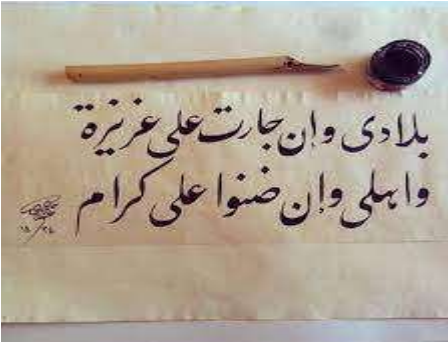 بلادى وإن جارت على عزيزة
واهلى وإن ضنوا على كرام